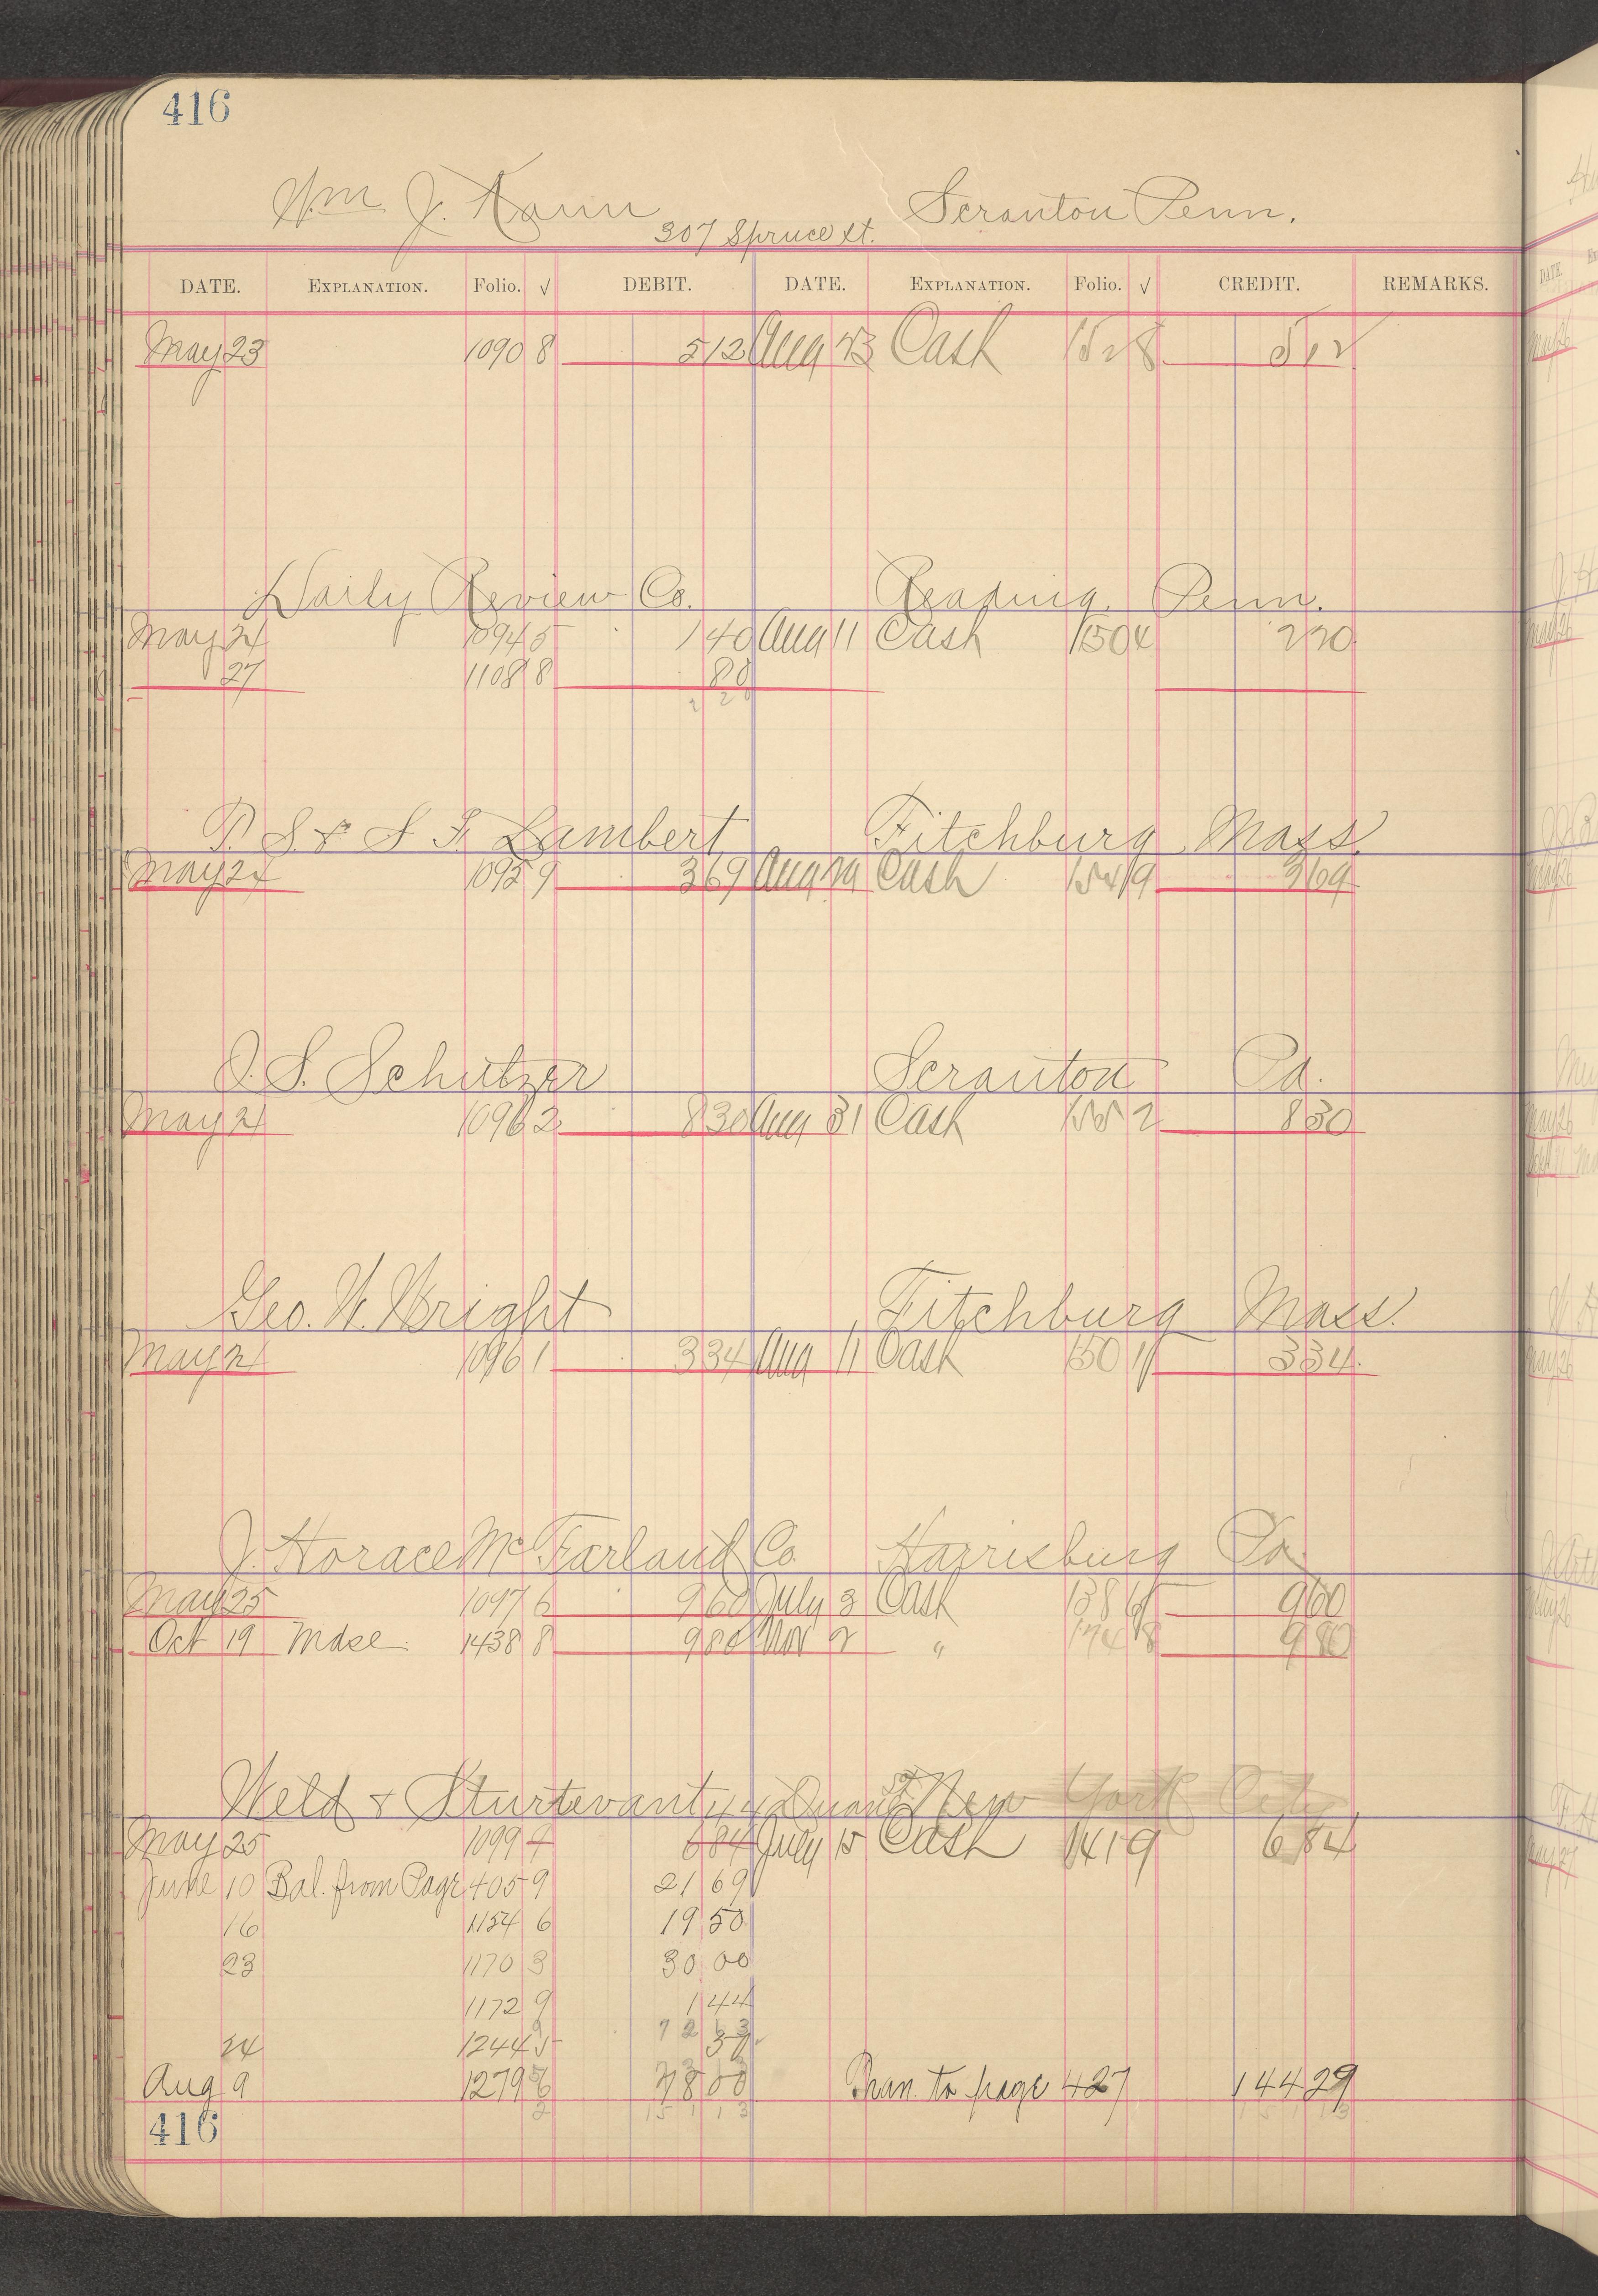 416
Wm J. Kann Scranton Penn.
307 Spruce St.
DATE. EXPLANATION. Folio. √ DEBIT. DATE. EXPLANATION. Folio. √ CREDIT. REMARKS.
May 23 1090 8 5 12 Aug 23 Cash 152 8 5 12
Daily Review Co. Reading. Penn.
May 24 1094 5 1 40 Aug 11 Cash 150 4 2 20
27 1108 8 80
2 20
P. S. & S F. Lambert Fitchburg Mass.
May 24 1095 9 3 69 Aug Cash 154 9 3 69
J. S. Schutzer Scranton Pa.
May 24 1096 2 8 30 Aug 31 Cash 155 2 8 30
Geo. W. Wright Fitchburg Mass.
May 24 1096 1 3 34 Aug 11 Cash 150 3 34
J. Horace McFarland Co. Harrisburg Pa.
May 25 1097 6 9 60 July 3 Cash 138 9 60
Oct 19 Mdse 1438 8 9 80 Nov 2 " 174 8 9 80
Weld & Sturtevant 44 Duane St New York City
May 25 1099 4 6 84 July 15 Cash 141 9 6 84
June 10 Bal. from Page 405 9 21 69
16 1154 6 19 50
23 1170 3 30 00
1172 9 1 44
72 63
24 1244 5
Aug 9 1279 6 78 00 Tran. to page 427 144 29
416